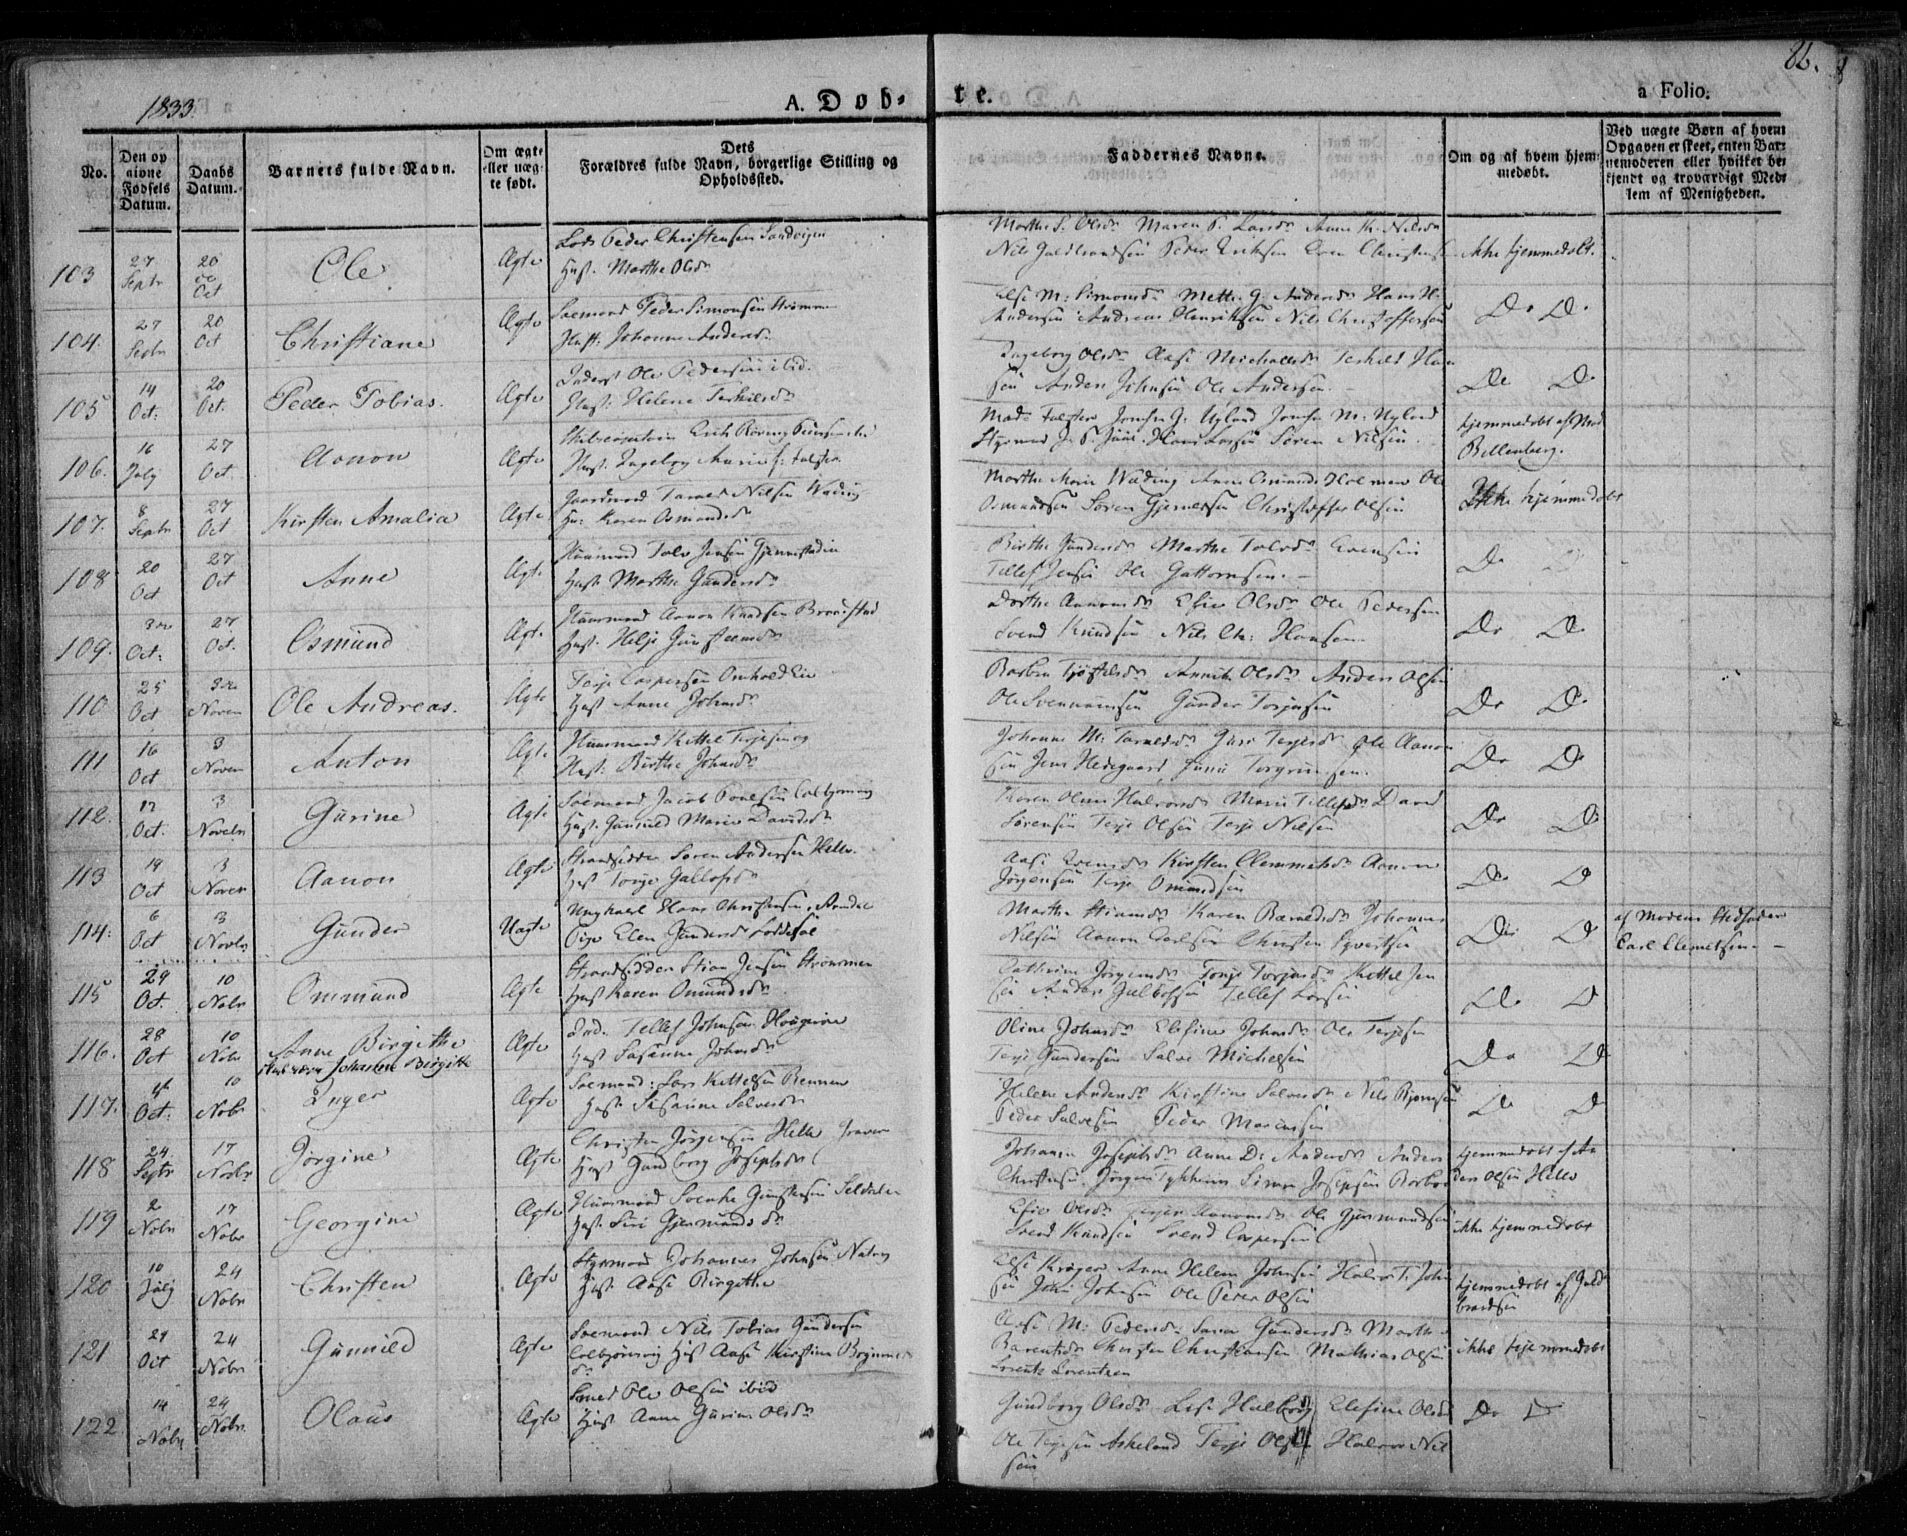 1833.
A. Døb-
te.
86.
a Folio.
No.
Den op
givne
Fødsels
Datum.
Daabs
Datum.
Barnets fulde Navn.
Om ægte
eller uæg-
te født.
Dets
Forældres fulde Navn, borgerlige Stilling og
Opholdssted.
Faddernes Navne.
Om og af hvem hjem-
medøbt.
Ved uægte Børn af hvem
Opgaven er skeet, enten Bar-
nemoderen eller hvilket be-
kjendt og troværdigt Med-
lem af Menigheden.
103 27 Septr 20 Oct Ole Ægte Lods Peder Christensen Sandvigen
Hust. Marthe Olsdr
Marthe S. Olsdr Maren P. Larsdr Anne K. Nilsdr
Nils Guldbrandsen Peder Eriksen Even Christens
ikke hjemmedøbt.
104. 27 Septr 20 Oct Christiane Ægte Søemand Peder Simonsen Strømmen
Hust: Johanne Andersdr
Else M: Simonsdr Mette G. Andersdr Hans H.
Andersen Andreas Henriksen Nils Christoffersen
Do Do
105 14 Oct: 20 Oct. Peder Tobias. Ægte Inderst Ole Pedersen ibid.
Hust: Helene Terkilsdr
Ingeborg Olsdr Aase Michaelsdr Terkild Han
sen Anders Johnsen Ole Andersen
Do Do
106. 16 July 27 Oct. Aanon Ægte
Hust. Ingeborg Marie f: Falster
Mad. Falster Jomfr J. Ugland Jomfr M. Ugland
Styrmd J. P. Juul Hans Larsen Søren Nilsen
hjemmedøbt af Mad
Bellenberg.
107. 8 Septr 27 Oct Kirsten Amalia Ægte Gaardmand Tarald Nilsen Wæding
Hu: Karen Osmundsdr
Marthe Marie Wæding Anne Osmunds Holmen Ole
Osmundsen Søren Gjermersen Christoffer Olsen
Ikke hjemmedøbt
108 20 Oct 27 Oct Anne Ægte Huusmand Tolv Jensen Gjennestadien
Hust Marthe Gundersdr
Birthe Gundersdr Marthe Tolvsdr Evensen
Tellef Jensen Ole Guttormsen
Do Do
109. Oct: 27 Oct. Osmund Ægte Huusmand Aanon Knudsen
Hust. Helje Gunsteensdr
Dorthe Aanonsdr Elsie Olsdr Ole Pedersen
Svend Knudsen Nils Ch: Hansen
Do Do
110 25 Oct 3de Noven Ole Andreas. Ægte Terje Caspersen Omholdteie
Hust Anne Johnsdr
Barbra Tjøstelsdr Annete Olsdr Anders Olsen
Ole Svennumsen Gunder Torjusen
Do Do
111 16 Oct 3 Noven Anton Ægte Huusmand Kittel Terjesen og
Hust: Birthe Johnsdr
Johanne M: Taraldsdr Guro Terjesdr Ole Aanon
sen Jens Hedegaard Torgrimsen
Do Do
112. 12 Oct. 3 Novebr Gurine Ægte Søemand Jacob Poulsen Colbjørnsvig
Hust. Gunild Marie Davidsdr
Karen Oline Halvorsdr Marie Tellefsdr David
Sørensen Terje Olsen Terje Nilsen
Do Do
113 19 Oct 3 Noven Aanon Ægte Strandsidder Søren Andersen Helle.
Hust Tonje Gullofsdr
Aase Evensdr Kirsten Clemmetsdr Aanon
Jørgensen Terje Omundsen
Do Do
114: 6 Oct 3 Novbr Gunder Uægte Ungkarl Hans Christensen, Arendal
Pige Elen Gundersdr Loddesøl
Marthe Stiansdr Karen Baroldsdr Johannes
Nilsen Aanon Carlsen Christen Syvertsen
Do Do
af Moderens Stedfader
Carl Clemetsen.
115 29 Oct. 10 Nobr Ommund Ægte Strandsidder Stian Jensen Strømmen
Hust Karen Omundsdr
Cathrine Jørgensdr Tonje Torjusdr Kittel Jen
sen Anders Gulbofsen Tellef Larsen
Do Do
116. 28 Oct 10 Nobr Anne Birgithe
skal være Johanne Birgitte
Ægte Tellef Johnsen Hougerøe
Hust Susanne Johnsdr
Oline Johnsdr Elefine Johnsdr Ole Terjesen
Terje Gundersen Salve Michelsen
Do Do
117. Oct: 10 Nobr Inger Ægte Søemand: Lars Kittelsen Rennen
Hust. Susanne Salvesdr
Helene Andersdr Kirstine Salvesdr Nils Bjørnsen
Peder Salvesen Peder Marcussen
Do Do
118 24. Septr 17 Nobr Jørgine Ægte Christen Jørgensen Helle
Hust Gundborg Josephsdr
Johanne Josephsdr Anne D. Andersdr Anders
Christensen Jørgen Tykkheim Simon Josephsen Barboe
hjemmedøbt af An
ders Olsen Helle
119 2 Nobr 17 Nobr Georgine Ægte Huusmand Svenke Gunstensen Seldalen
Hust. Siri Gjermundsdr
Elsie Olsdr Aanonsdr Ole Gjermundsen
Svend Knudsen Svend Caspersen
ikke hjemmedøbt
120 10 July 24 Nobr Christen Ægte Styrmand Johannes Johnsen Natvig
Hust Aase Birgitthe
Else Krøger Anne Helene Johnsen Halvor T. John
sen John Johnsen Ole Peder Olsen
hjemmedøbt af Guld
brandsen
121 29 Oct 24 Nobr Gunnild Ægte Søemand Nils Tobias Gundersen
Colbjørnsvig Hust Aase Kirstine Brynnins
dr
Aase M: Pedersdr Sara Gundersdr Marthe
Barentsdr Christen Christiansen Mathias Olsen
Lorentz Lorentzen
ikke hjemmedøbt
122 14 Nobr 24 Nobr Olaus Ægte Smed Ole Olsen ibid
Hust Anne Gurine Olsdr
Gundborg Olsdr Lise Hulborg Elefine Olsdr
Ole Terjesen Askeland Terje Olsen Halvor Nil
sen
Do Do